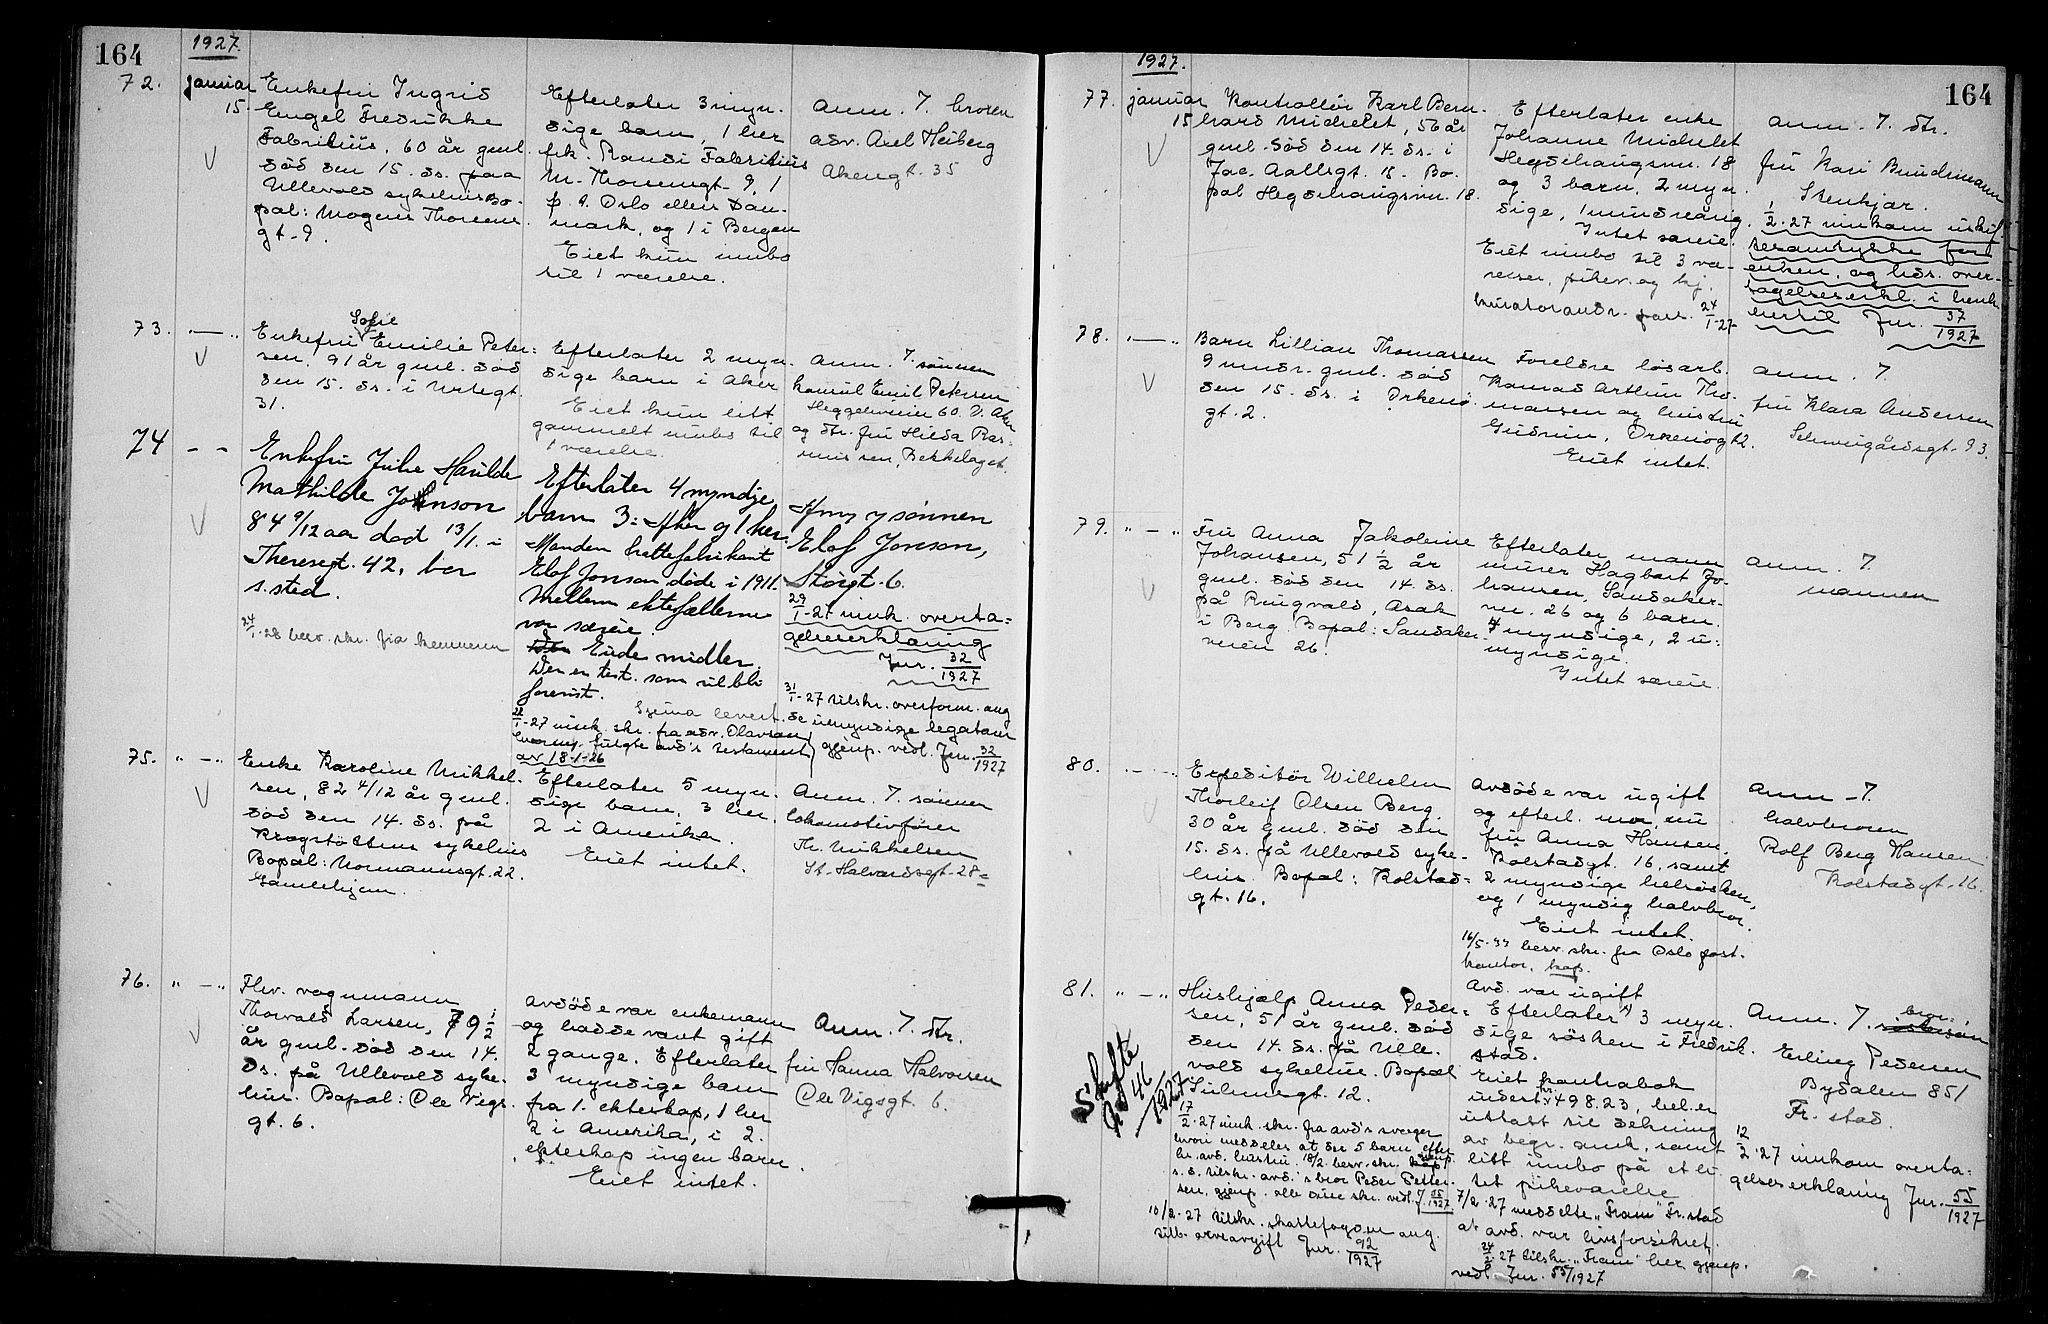 164
1927.
72.
januar
15.
Enkefru Ingrid
Engel Fredrikke
Fabritius, 60 år gml.
död den 15. ds. paa
Ullevold sykehus. Bo-
pæl: Mogens Thorsens
gt. 9.
Efterlater 3 myn-
dige barn, 1 her
frk. Randi Fabritius
M. Thorsensgt. 9, 1
p. t. Oslo ellers Dan-
mark, og 1 i Bergen
Eiet kun innbo
til 1 værelse.
Anm. 7. broren
adv. Axel Heiberg
Akersgt. 35
73.
" — "
Enkefru Sofie Emilie Peter-
sen, 91 år gml. död
den 15. ds. i Urtegt.
31.
Efterlater 2 myn-
dige barn i Aker
Eiet kun litt
gammelt innbo til
1 værelse.
Anm. 7. sønnen
konsul Emil Petersen
Heggeliveien 60. V. Aker
og dtr. fru Hilda Ras-
mussen, Bekkelaget.
74
- -
Enkefru Julie Havilde
Mathilde Johnson
84 9/12 aar død 13/1. i
Theresegt. 42, bor
s. sted.
24/1-28 besv. skr. fra kemneren
Efterlater 4 myndige
barn 3: Aker og 1 her.
Manden hattefabrikant
Elof Jonson døde i 1911.
Mellem ektefællerne
var særeie.
Ende midler.
Der er test. som vil bli
forevist.
levert
22/1-27 innk. skr. fra adv. Olavson
hvorm. fulgte avd's testament
av 18-1-26
Anm 7 sønnen
Elof Jonson,
Storgt. 6.
29/1-27 innk. overta-
gelseserklæring
Jnr. 32/1927
31/1-27 tilskr. overform. ang
de umyndige legatarer
gjenp. vedl. Jnr. 32/1927
75.
" — "
Enke Karoline Mikkel-
sen, 82 4/12 år gml.
död den 14. ds. på
Krogstöttens sykehus
Bopæl: Normannsgt. 22.
Gamlehjem.
Efterlater 5 myn-
dige barn, 3 her,
2 i Amerika.
Eiet intet.
Anm. 7. sønnen
lokomotivfører
Th. Mikkelsen
St. Halvardsgt. 28
76.
" — "
Fhv. vognmann
Thorvald Larsen, 79 1/2
år gml. död den 14.
ds. på Ullevold syke-
hus. Bopæl: Ole Vigs
gt. 6.
Avdöde var enkemann
og hadde vært gift
2 gange. Efterlater
3 myndige barn
fra 1. ekteskap, 1 her
2 i Amerika, i 2.
ekteskap ingen barn.
Eiet intet.
Anm. 7. dtr.
fru Hanna Halvorsen
Ole Vigsgt. 6.
1927.
164
77.
januar
15
Kontrollör Karl Bern-
hard Michelet, 56 år
gml. död den 14. ds. i
Jac. Aallsgt. 15. Bo-
pæl Hegdehaugsvn. 18.
Efterlater enke
Johanne Michelet
Hegdehaugsvn. 18
og 3 barn, 2 myn-
dige, 1 mindreårig.
Intet særeie.
Eiet innbo til 3 væ-
relser, pikev. og kj.
24/1-27
Anm. 7. dtr.
fru Kari Bruusmann
Stenkjær.
1/2-27 innkom uskif-
tesamtykke for
enken, og hds. over-
tagelseserkl. i henh.
hertil Jnr. 37/1927
78.
" — "
Barn Lillian Thomassen
9 mndr. gml. död
den 15. ds. i Orknö-
gt. 2.
Foreldre løsarb.
Konrad Arthur Tho-
massen og hustru
Gudrun, Orknögt 2.
Eiet intet.
Anm. 7.
fru Klara Andersen
Schweigårdsgt. 93.
79.
" — "
Fru Anna Jakobine
Johansen, 51 1/2 år
gml. död den 14. ds.
på Ringvold, Asak
i Berg. Bopæl: Sandaker-
veien 26.
Efterlater mann
murer Hagbart Jo-
hansen, Sandaker-
vn. 26 og 6 barn.
4 myndige, 2 u-
myndige.
Intet særeie.
Anm. 7.
mannen
80.
" — "
Expeditör Wilhelm
Thorleif Olsen Berg.
30 år gml. död den
15. ds. på Ullevold syke-
hus. Bopæl: Kolstad-
gt. 16.
Avdöde var ugift
og efterl. mor, nu
fru Anna Hansen.
Kolstadgt. 16, samt
2 myndige helsösken,
og 1 myndig halvbror.
Eiet intet.
16/5-33 besv. skr. fra Oslo post-
kontor, kap.
Anm. 7.
halvbroren
Rolf Berg Hansen
Kolstadgt. 16.
81.
" — "
Hushjelp Anna Peder-
sen, 51 år gml. död
den 14. ds. på Ulle-
vold sykehus. Bopæl
12.
Skifte
46/1927
17/2-27 innk. skr. fra avd's svoger
hvori meddeles at de 5 barn efter
hr. avd. hustru. 18/2 besv. skr. gjenp.
s. d. tilskr. avd's bror Peder Petter-
sen, gjenp. alle disse skr. vedl. J. 55/1927
10/2-27 tilskr. skattefogden ang.
tilb. arveavgift Jnr. 92/1927
Avd. var ugift
Efterlater 3 myn-
dige sösken i Fredrik-
stad.
Eiet kontrabok
innest. kr. 498.23, bel. er
uttatt til dekning
av begr. omk, samt
litt innbo på et li-
tet pikeværelse
7/2-27 meddelte "Fram" Fr.stad
at avd. var livsforsikret.
24/2-27 tilskr. "Fram" her, gjenp.
vedl. Jnr. 55/1927
Anm. 7. bror
Erling Pedersen
Bydalen 851
Fr. stad.
12/2-27 innkom overta-
gelseserklæring Jnr. 55/1927